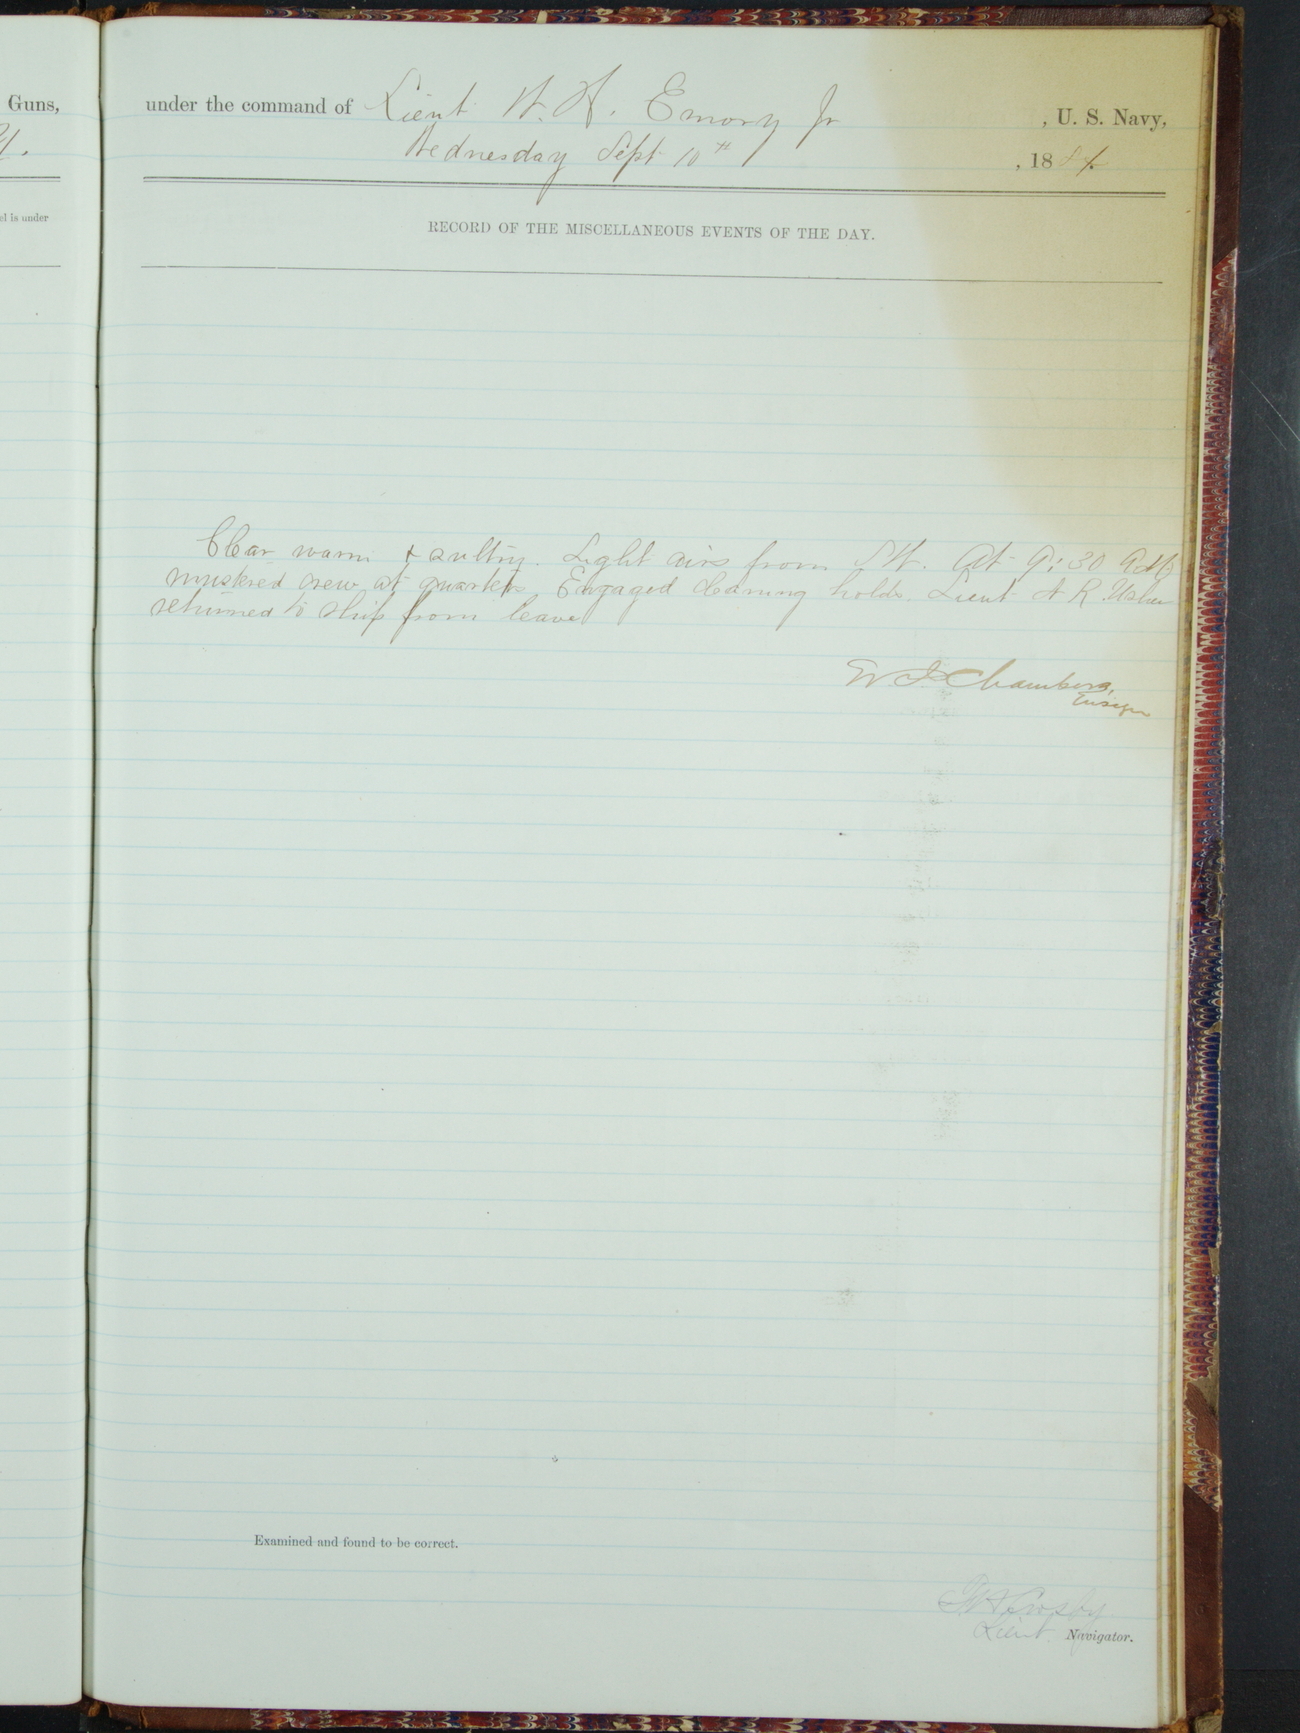 Guns,
el is under
under the command of Lieut W. H. Emory Jr , U. S. Navy,
Wednesday Sept 10th , 1884.
RECORD OF THE MISCELLANEOUS EVENTS OF THE DAY.
Clear warm & sultry. Light airs from SW. At 9:30 AM
mustered crew at quarters Engaged cleaning holds. Lieut N R Usher
returned to ship from leave
W I Chambers,
Ensign
Examined and found to be correct.
Crosby
Lieut. Navigator.